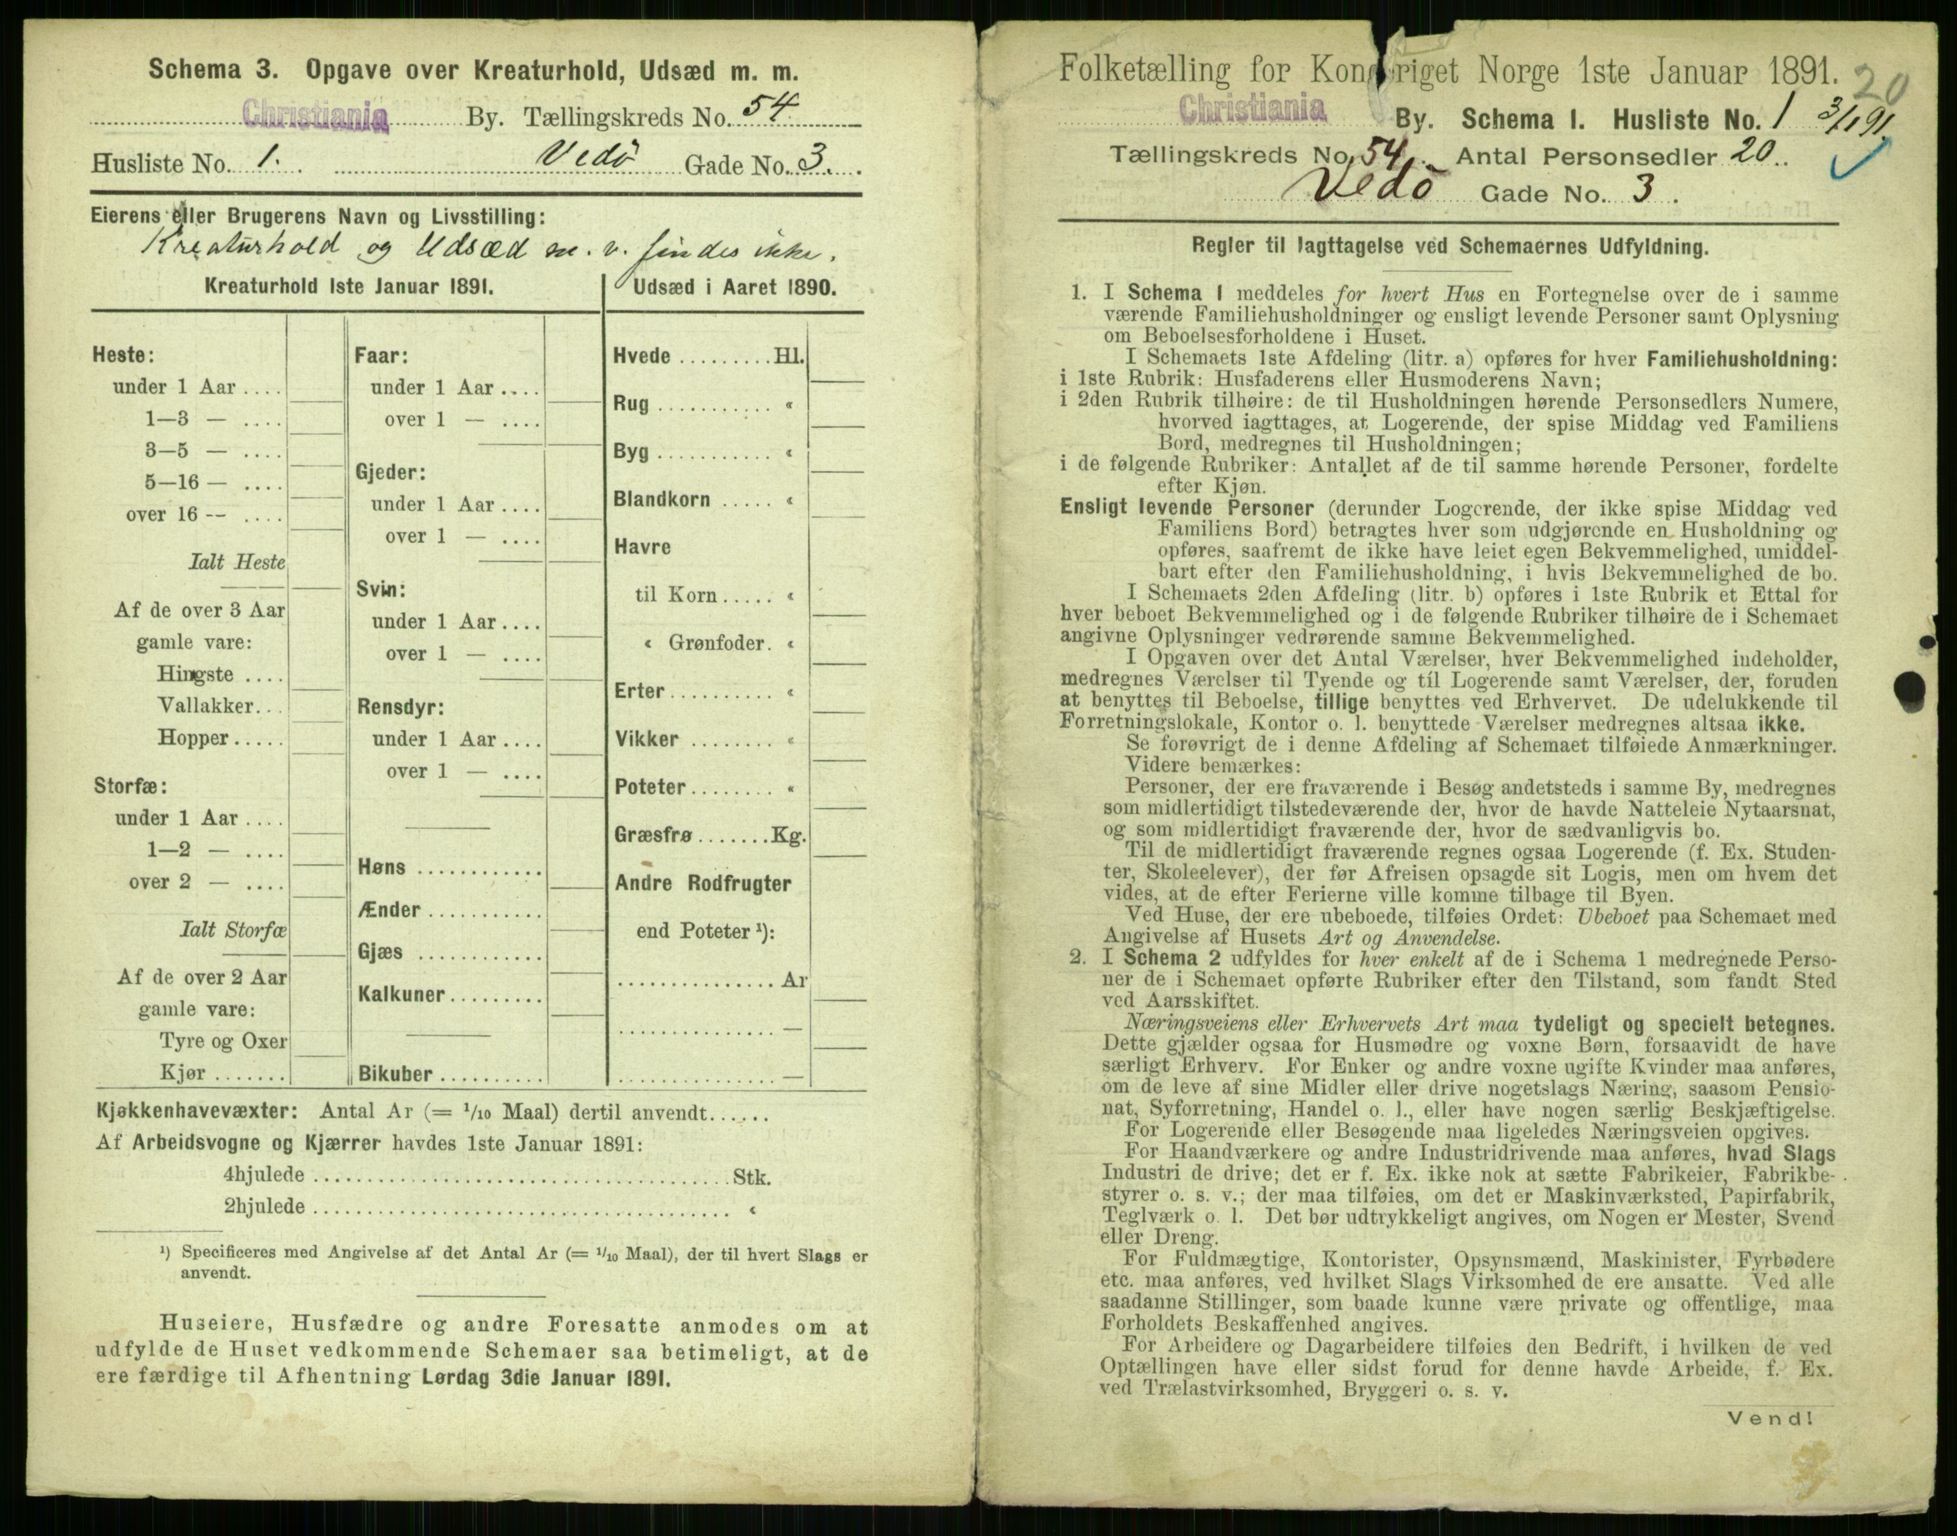 Schema 3. Opgave over Kreaturhold, Udsæd m. m.
Christiania By. Tællingskreds No. 54.
Husliste No. 1. Vedö Gade No. 3.
Eierens eller Brugerens Navn og Livsstilling:
Kreaturhold og Udsæd m. v. findes ikke.
Kreaturhold 1ste Januar 1891.
Heste:
under 1 Aar ....
1—3 — ....
3—5 — ....
5—16 — ....
over 16 -- ....
Ialt Heste
Af de over 3 Aar
gamle vare:
Hingste ....
Vallakker...
Hopper.....
Storfæ:
under 1 Aar ....
1—2 — ....
over 2 — ....
Ialt Storfæ
Af de over 2 Aar
gamle vare:
Tyre og Oxer
Kjør .......
Faar:
under 1 Aar ....
over 1 — ....
Gjeder:
under 1 Aar ....
over 1 — ....
Svin:
under 1 Aar ....
over 1 — ....
Rensdyr:
under 1 Aar ....
over 1 — ....
Høns ............
Ænder ...........
Gjæs ............
Kalkuner.........
Bikuber ..........
Udsæd i Aaret 1890.
Hvede .........Hl.
Rug ........... «
Byg ........... «
Blandkorn ..... «
Havre
til Korn ..... «
« Grønfoder. «
Erter.......... «
Vikker ........ «
Poteter........ «
Græsfrø .......Kg.
Andre Rodfrugter
end Poteter ¹):
............... Ar
............... —
............... —
Kjøkkenhavevæxter: Antal Ar (= 1/10 Maal) dertil anvendt......
Af Arbeidsvogne og Kjærrer havdes 1ste Januar 1891:
4hjulede ........................................Stk.
2hjulede ........................................ «
¹) Specificeres med Angivelse af det Antal Ar (= 1/10 Maal), der til hvert Slags er
anvendt.
Huseiere, Husfædre og andre Foresatte anmodes om at
udfylde de Huset vedkommende Schemaer saa betimeligt, at de
ere færdige til Afhentning Lørdag 3die Januar 1891.
Folketælling for Kongeriget Norge 1ste Januar 1891.
20
Christiania By. Schema 1. Husliste No. 1 3/1 91.
Tællingskreds No. 54. Antal Personsedler 20.
Vedö Gade No. 3.
Regler til Iagttagelse ved Schemaernes Udfyldning.
1. I Schema 1 meddeles for hvert Hus en Fortegnelse over de i samme
værende Familiehusholdninger og ensligt levende Personer samt Oplysning
om Beboelsesforholdene i Huset.
I Schemaets 1ste Afdeling (litr. a) opføres for hver Familiehusholdning:
i 1ste Rubrik: Husfaderens eller Husmoderens Navn;
i 2den Rubrik tilhøire: de til Husholdningen hørende Personsedlers Numere,
hvorved iagttages, at Logerende, der spise Middag ved Familiens
Bord, medregnes til Husholdningen;
i de følgende Rubriker: Antallet af de til samme hørende Personer, fordelte
efter Kjøn.
Ensligt levende Personer (derunder Logerende, der ikke spise Middag ved
Familiens Bord) betragtes hver som udgjørende en Husholdning og
opføres, saafremt de ikke have leiet egen Bekvemmelighed, umiddel-
bart efter den Familiehusholdning, i hvis Bekvemmelighed de bo.
I Schemaets 2den Afdeling (litr. b) opføres i 1ste Rubrik et Ettal for
hver beboet Bekvemmelighed og i de følgende Rubriker tilhøire de i Schemaet
angivne Oplysninger vedrørende samme Bekvemmelighed.
I Opgaven over det Antal Værelser, hver Bekvemmelighed indeholder,
medregnes Værelser til Tyende og til Logerende samt Værelser, der, foruden
at benyttes til Beboelse, tillige benyttes ved Erhvervet. De udelukkende til
Forretningslokale, Kontor o. l. benyttede Værelser medregnes altsaa ikke.
Se forøvrigt de i denne Afdeling af Schemaet tilføiede Anmærkninger.
Videre bemærkes:
Personer, der ere fraværende i Besøg andetsteds i samme By, medregnes
som midlertidigt tilstedeværende der, hvor de havde Natteleie Nytaarsnat,
og som midlertidigt fraværende der, hvor de sædvanligvis bo.
Til de midlertidigt fraværende regnes ogsaa Logerende (f. Ex. Studen-
ter, Skoleelever), der før Afreisen opsagde sit Logis, men om hvem det
vides, at de efter Ferierne ville komme tilbage til Byen.
Ved Huse, der ere ubeboede, tilføies Ordet: Ubeboet paa Schemaet med
Angivelse af Husets Art og Anvendelse.
2. I Schema 2 udfyldes for hver enkelt af de i Schema 1 medregnede Perso-
ner de i Schemaet opførte Rubriker efter den Tilstand, som fandt Sted
ved Aarsskiftet.
Næringsveiens eller Erhvervets Art maa tydeligt og specielt betegnes.
Dette gjælder ogsaa for Husmødre og voxne Børn, forsaavidt de have
særligt Erhverv. For Enker og andre voxne ugifte Kvinder maa anføres,
om de leve af sine Midler eller drive nogetslags Næring, saasom Pensio-
nat, Syforretning, Handel o. l., eller have nogen særlig Beskjæftigelse.
For Logerende eller Besøgende maa ligeledes Næringsveien opgives.
For Haandværkere og andre Industridrivende maa anføres, hvad Slags
Industri de drive; det er f. Ex. ikke nok at sætte Fabrikeier, Fabrikbe-
styrer o. s. v.; der maa tilføies, om det er Maskinværksted, Papirfabrik,
Teglværk o. l. Det bør udtrykkeligt angives, om Nogen er Mester, Svend
eller Dreng.
For Fuldmægtige, Kontorister, Opsynsmænd, Maskinister, Fyrbødere
etc. maa anføres, ved hvilket Slags Virksomhed de ere ansatte. Ved alle
saadanne Stillinger, som baade kunne være private og offentlige, maa
Forholdets Beskaffenhed angives.
For Arbeidere og Dagarbeidere tilføies den Bedrift, i hvilken de ved
Optællingen have eller sidst forud for denne havde Arbeide, f. Ex.
ved Trælastvirksomhed, Bryggeri o. s. v.
Vend!